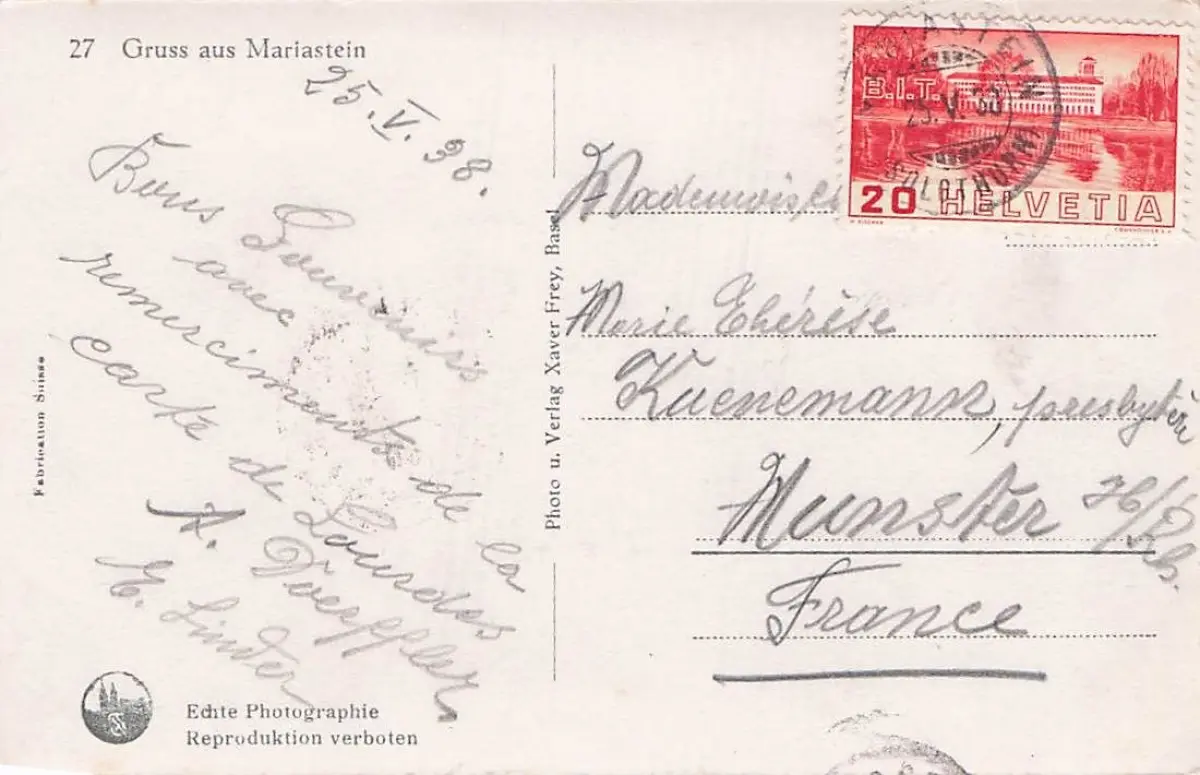 27 Gruss aus Mariastein
25.V.38.
Bons Souvenirs
avec
remerciments de la
carte de Lourdes
A. Doerffler
E. Linder
Fabrication Suisse
Echte Photographie
Reproduktion verboten
Photo u. Verlag Xaver Frey, Basel
B.I.T.
20 HELVETIA
25.V.38
Mademoisel
Marie Thérèse
Kuenemann, presbytère
Munster H/Rh.
France